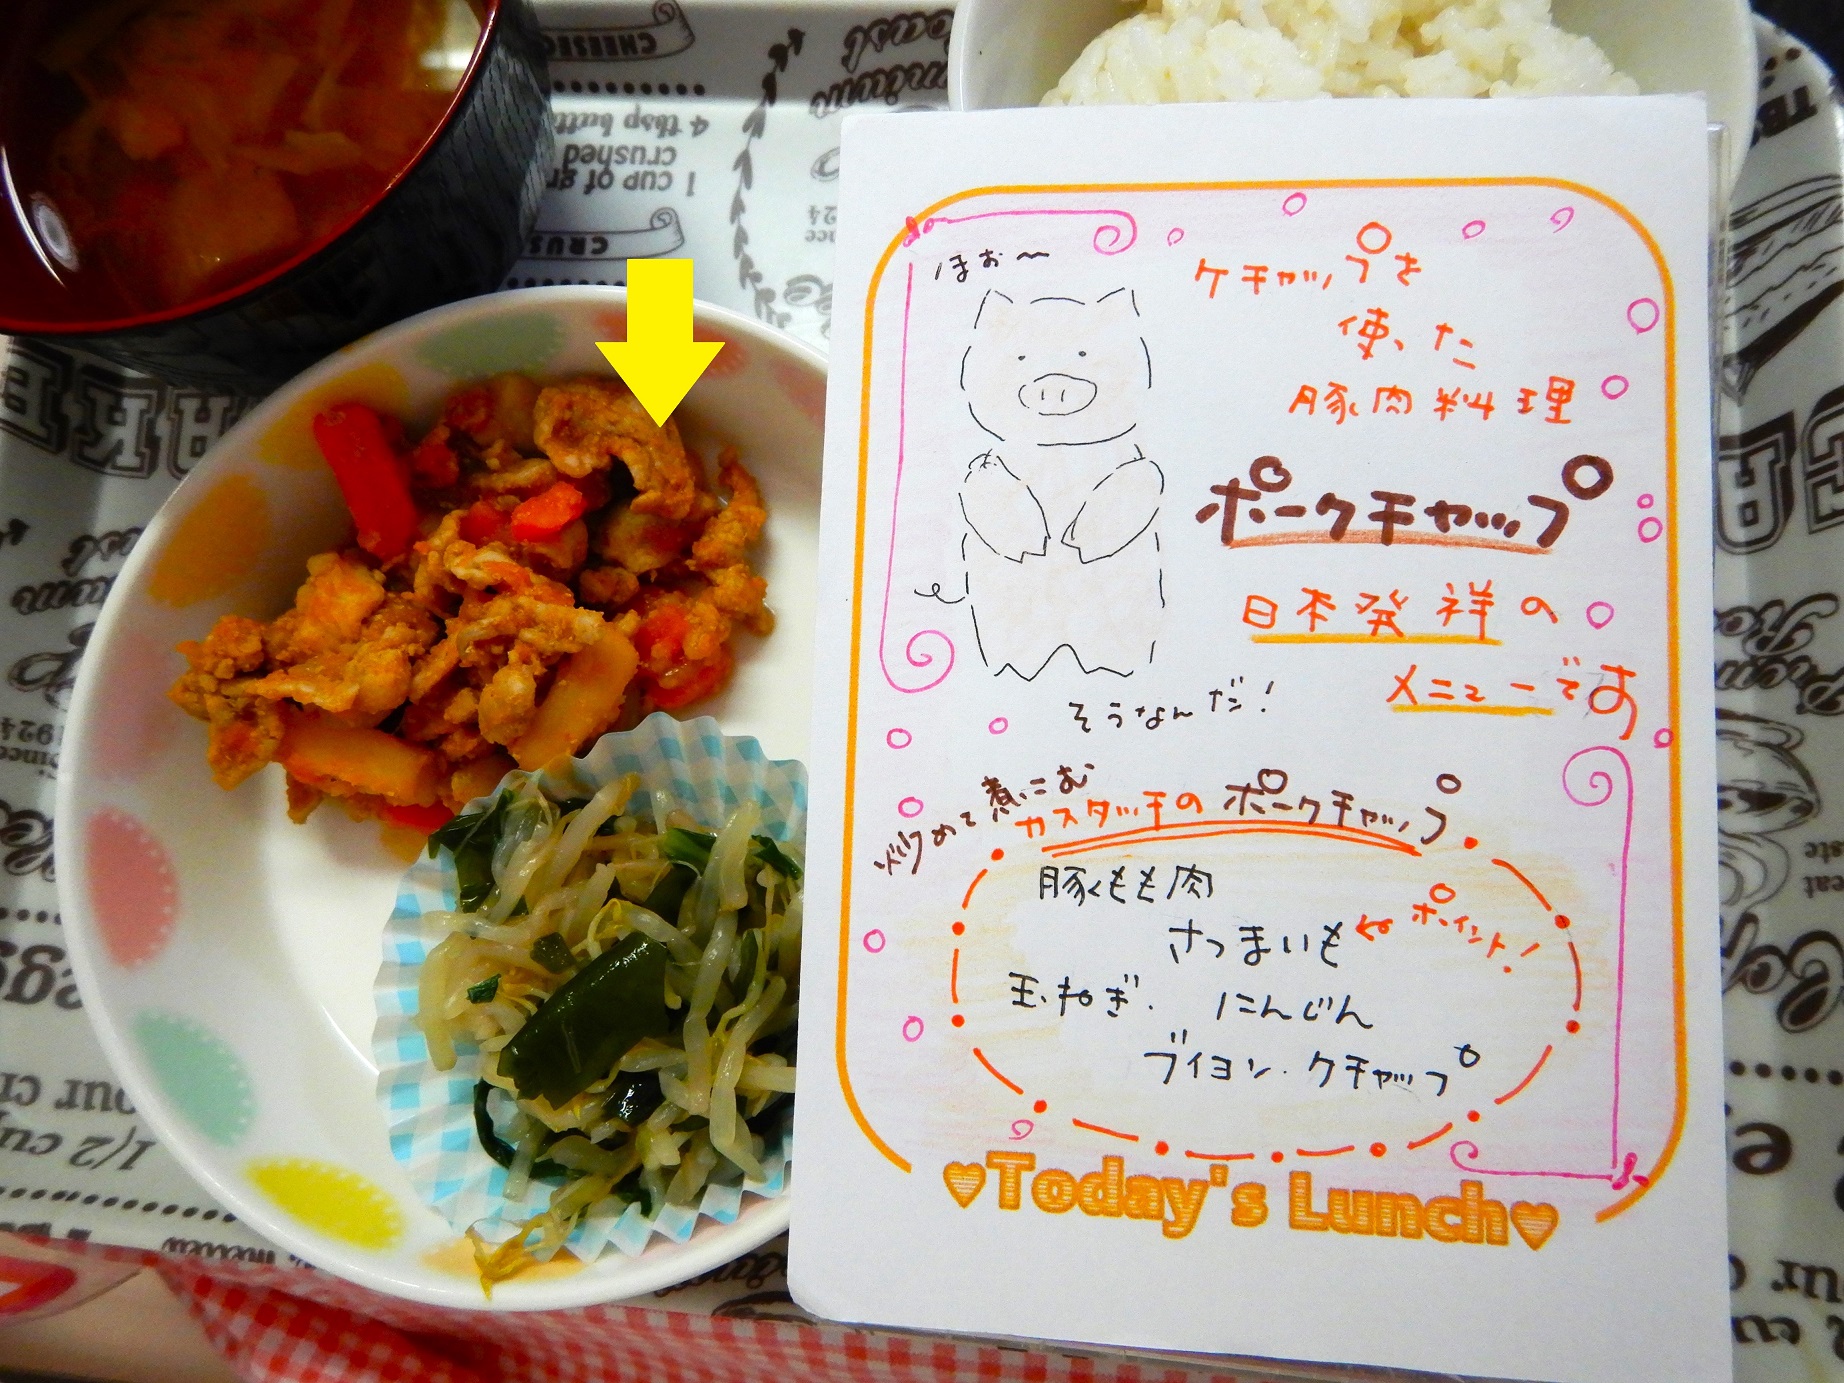 ほぉ〜
ケチャップを
使った
豚肉料理
ポークチャップ
日本発祥の
メニューです
そうなんだ！
炒めて煮こむ
カスタッチの ポークチャップ
豚もも肉
さつまいも ← ポイント！
玉ねぎ． にんじん
ブイヨン．ケチャップ
♥Today's Lunch♥
CHEESEC
4 tbsp butte
crushed
1 cup of gr
CRUS
1924
1/2 cup
our cr